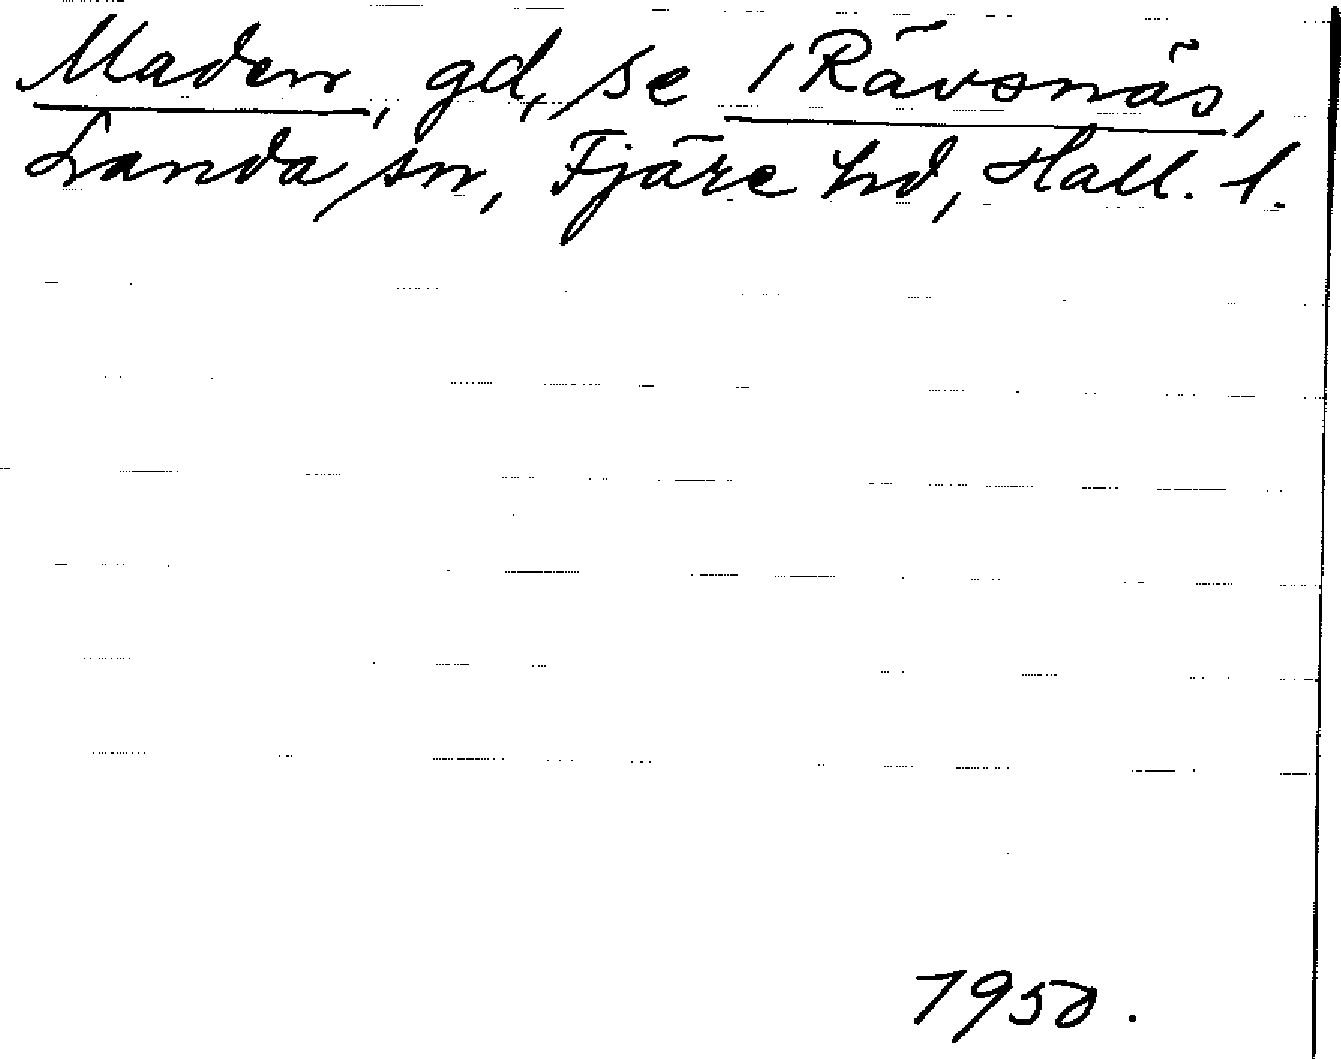 Maden, gd, se 1 Rävsnäs,
Landa sn, Fjäre hd, Hall. l.
1950.